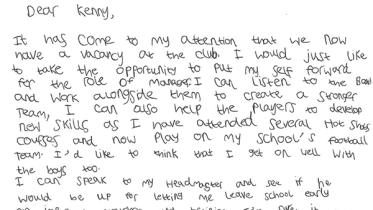 Dear Kenny,
It has come to my attention that we now
have a vacancy at the club. I would just like
to take the opportunity to put my self forward
for the role of manager. I can listen to the Board
and work alongside them to create a stronger
team, I can also help the players to develop
new skills as I have attended several Hot Shots
courses and now play on my school's football
team. I'd like to think that I get on well with
the boys too.
I can speak to my Headmaster and see if he
would be up for letting me leave school early